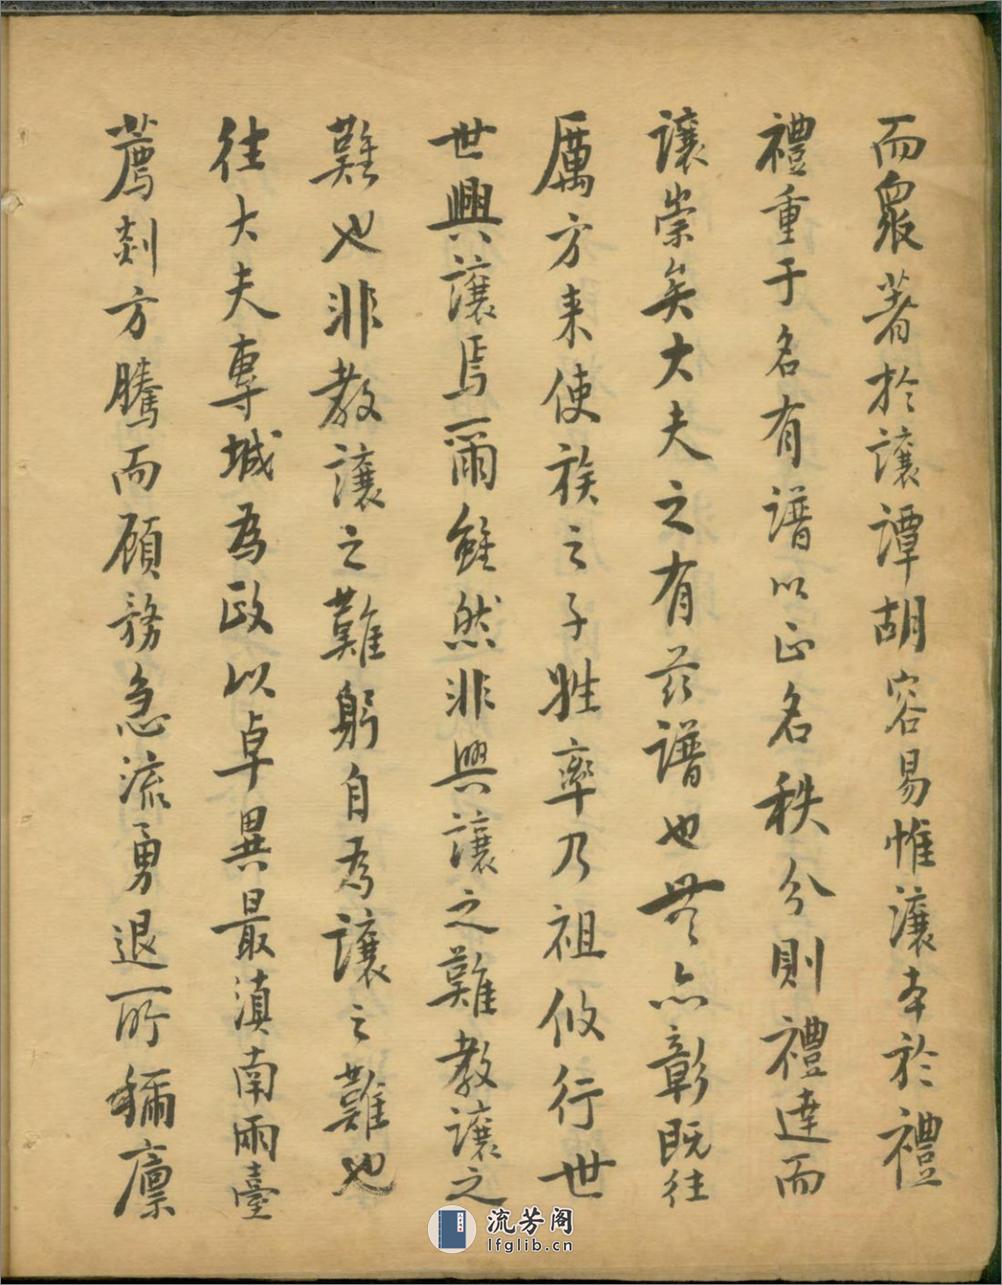 而衆著於讓譚胡容易惟讓本於禮
禮重于名有譜以正名秩分則禮達而
讓崇矣大夫之有茲譜也無亦彰既往
厲方来使族之子姓率乃祖攸行世
世興讓焉爾雖然非興讓之難教讓之
難也非教讓之難躬自為讓之難也
往大夫專城為政以卓異最滇南兩臺
薦剡方騰而顧務急流勇退所稱廩
流芳阁
lfglib.cn